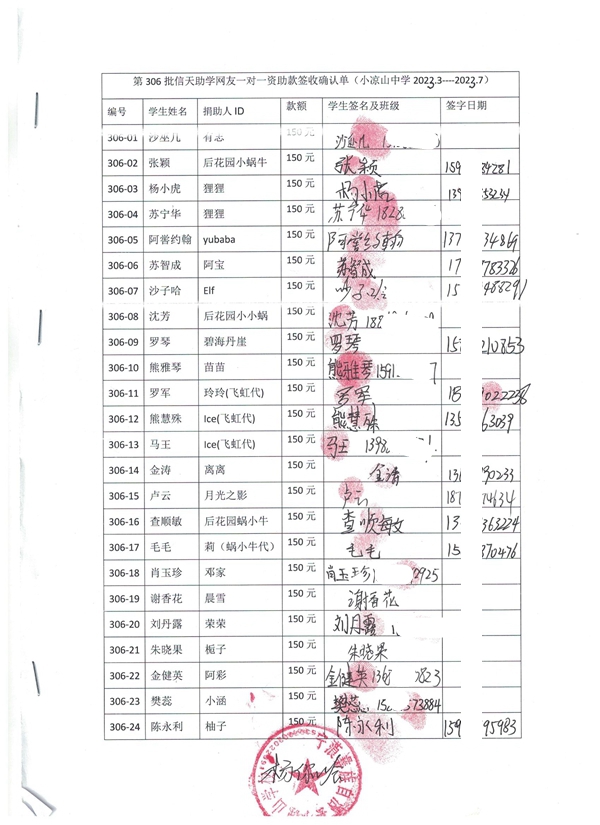 第 306 批信天助学网友一对一资助款签收确认单（小凉山中学 2023.3----2023.7）
编号 学生姓名 捐助人 ID 款额 学生签名及班级 签字日期
306-01 沙巫几 有志 150 元 沙巫几
306-02 张颖 后花园小蜗牛 150 元 张颖 159 34281
306-03 杨小虎 狸狸 150 元 杨小虎 139 53234
306-04 苏宁华 狸狸 150 元 苏宁华 1828
306-05 阿喾约翰 yubaba 150 元 阿喾约翰 137 34869
306-06 苏智成 阿宝 150 元 苏智成 17 783326
306-07 沙子哈 Elf 150 元 沙子哈 15 488291
306-08 沈芳 后花园小小蜗 150 元 沈芳 182
306-09 罗琴 碧海丹崖 150 元 罗琴 15 210853
306-10 熊雅琴 苗苗 150 元 熊雅琴 1591 7
306-11 罗军 玲玲(飞虹代) 150 元 罗军 18 9022236
306-12 熊慧殊 Ice(飞虹代) 150 元 熊慧殊 135 63039
306-13 马王 Ice(飞虹代) 150 元 马王 1398
306-14 金涛 离离 150 元 金涛 131 90233
306-15 卢云 月光之影 150 元 卢云 187 74634
306-16 查顺敏 后花园蜗小牛 150 元 查顺敏 13 363224
306-17 毛毛 莉（蜗小牛代） 150 元 毛毛 15 370476
306-18 肖玉珍 邓家 150 元 肖玉珍 2925
306-19 谢香花 晨雪 150 元 谢香花
306-20 刘丹露 荣荣 150 元 刘丹露
306-21 朱晓果 栀子 150 元 朱晓果
306-22 金健英 阿彩 150 元 金健英 136 7823
306-23 樊蕊 小涵 150 元 樊蕊 15 573884
306-24 陈永利 柚子 150 元 陈永利 159 95983